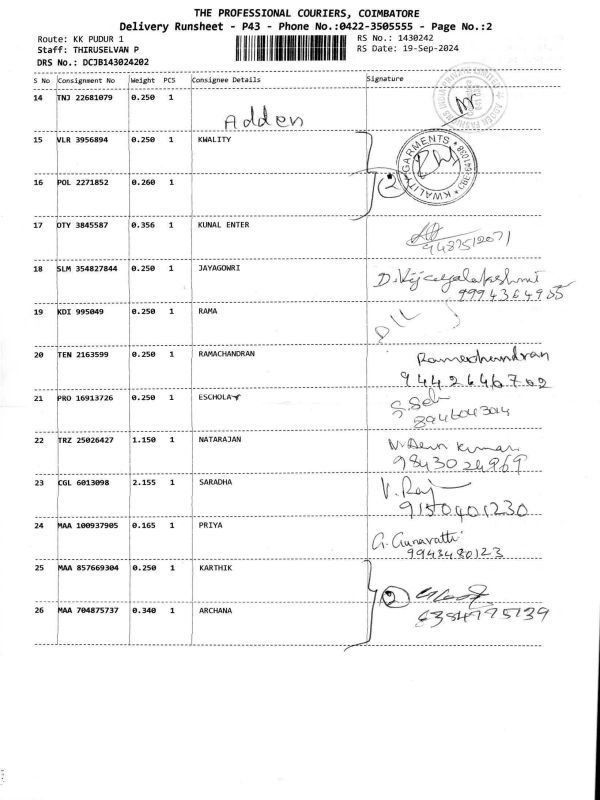 THE PROFESSIONAL COURIERS, COIMBATORE
Delivery Runsheet - P43 - Phone No.:0422-3505555 - Page No.:2
Route: KK PUDUR 1 RS No.: 1430242
Staff: THIRUSELVAN P RS Date: 19-Sep-2024
DRS No.: DCJB143024202
S No Consignment No Weight PCS Consignee Details Signature
14 TNJ 22681079 0.250 1
Adden
15 VLR 3956894 0.250 1 KWALITY
KWALITY GARMENTS
16 POL 2271852 0.260 1 2
17 OTY 3845587 0.356 1 KUNAL ENTER
9487512071
18 SLM 354827844 0.250 1 JAYAGOWRI
D. Vijayalakshmi
9994364955
19 KDI 995049 0.250 1 RAMA
20 TEN 2163599 0.250 1 RAMACHANDRAN Ramachandran
9442646702
21 PRO 16913726 0.250 1 ESCHOLA
8946043014
22 TRZ 25026427 1.150 1 NATARAJAN
9843024969
23 CGL 6013098 2.155 1 SARADHA V. Raj
9150401230
24 MAA 100937905 0.165 1 PRIYA G. Gunavathi
9943480123
25 MAA 857669304 0.250 1 KARTHIK
2
26 MAA 704875737 0.340 1 ARCHANA 6384775739